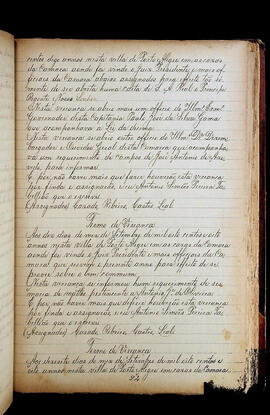 centos dize annos nesta villa de Porto Alegre em as cazas
da Camara aonde foi vindo o Juiz Presidente e mais of-
ficiaes da Camara abaixo assignados para effeito tão só-
mente de se abrir huma carta de S. A. Real o Principe
Regente Nosso Senhor.
Nesta vereança se abrio mais um officio do Illmo. Exmo.
Governador desta Capitania Paulo José da Silva Gama
que acompanhava a Lei da
Nesta vereança se abrio outro officio do Illmo. Dr. Dezem-
bargador e Ouvidor Geral d. Comarca que acompanha-
va um requerimento de campos de José Antonio de Aze-
vedo, para informar.
E por não haver mais que fazer houverão esta vereança
por finda e assignarão, e eu Antonio Simões Pereira Ta-
bellião que o escrevi
(Assignados) Cazado, Ribeiro, Castro, Leal
Termo de Vereança
Aos dez dias do mez de Setembro de mil e oito centos e oito
annos nesta villa de Porto Alegre em as cazas da Camara
aonde foi vindo o Juiz Presidente e mais officiaes da Ca-
mara que servem o prezente anno para effeito de se
prover sobre o bem commum.
Nesta vereança se informou hum requerimento de se-
maria de pertencente a Antonio de Oliveira
E por não haver mais que deferir houverão esta vereança
por finda e assignarão, e eu Antonio Simões Pereira Ta-
bellião que o escrevi
(Assignados) Cazado, Ribeiro, Castro, Leal
Termo de Vereança
Aos dezesete dias do mez de Setembro de mil oito centos e
oito annos nesta villa de Porto Alegre em cazas da Camara